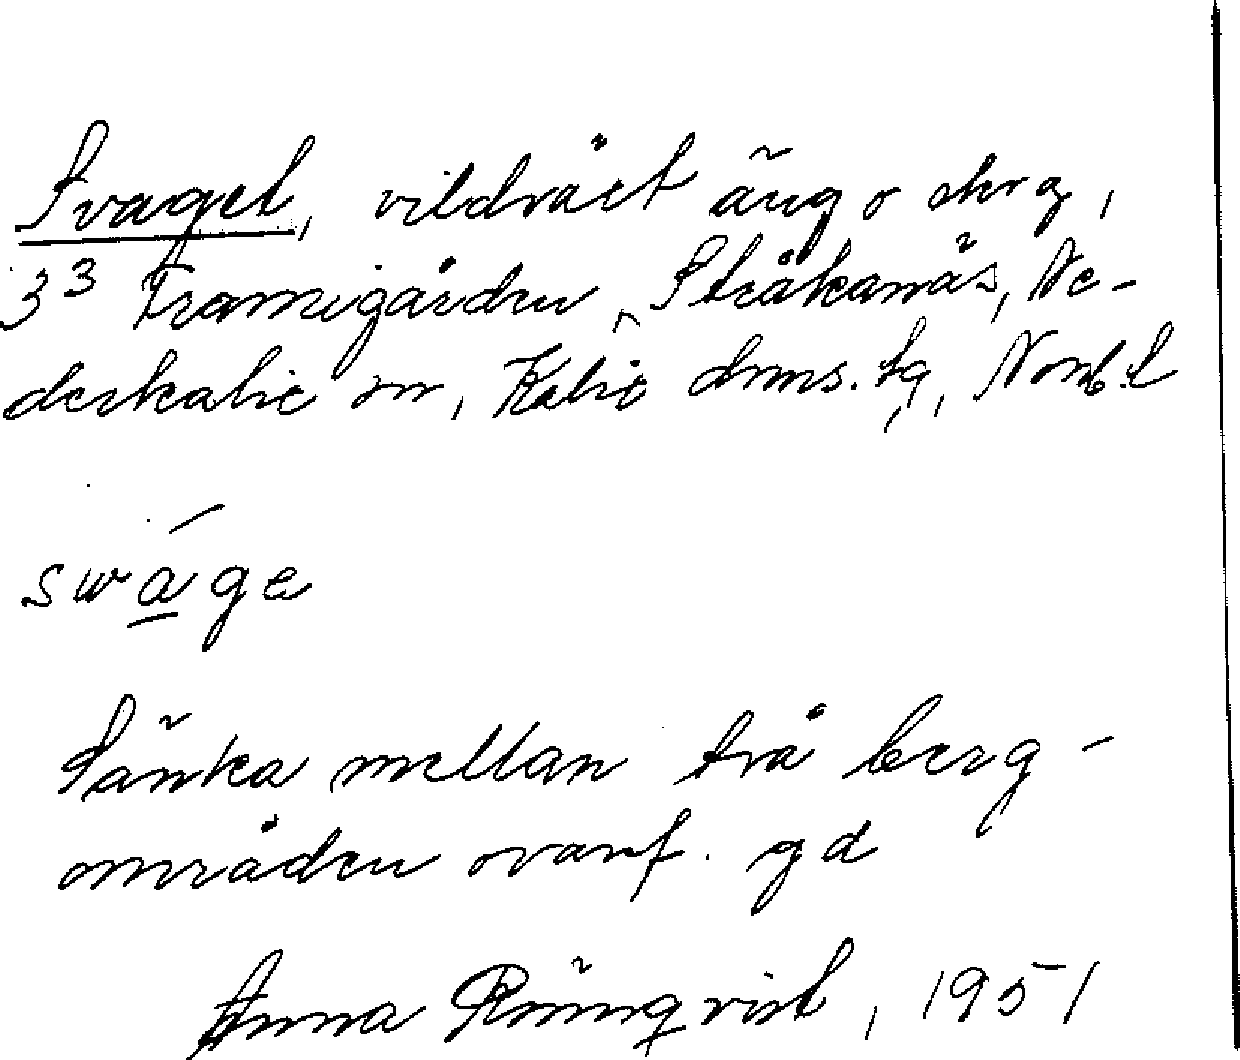 Svaget, vildväxt äng o skog,
3³ Framigården, Stråkanäs, Ne-
derkalix sn, Kalix dms. tg, Norrb. l
swáge
Sänka mellan två berg-
områden ovanf. gd
Anna Rönnqvist, 1951